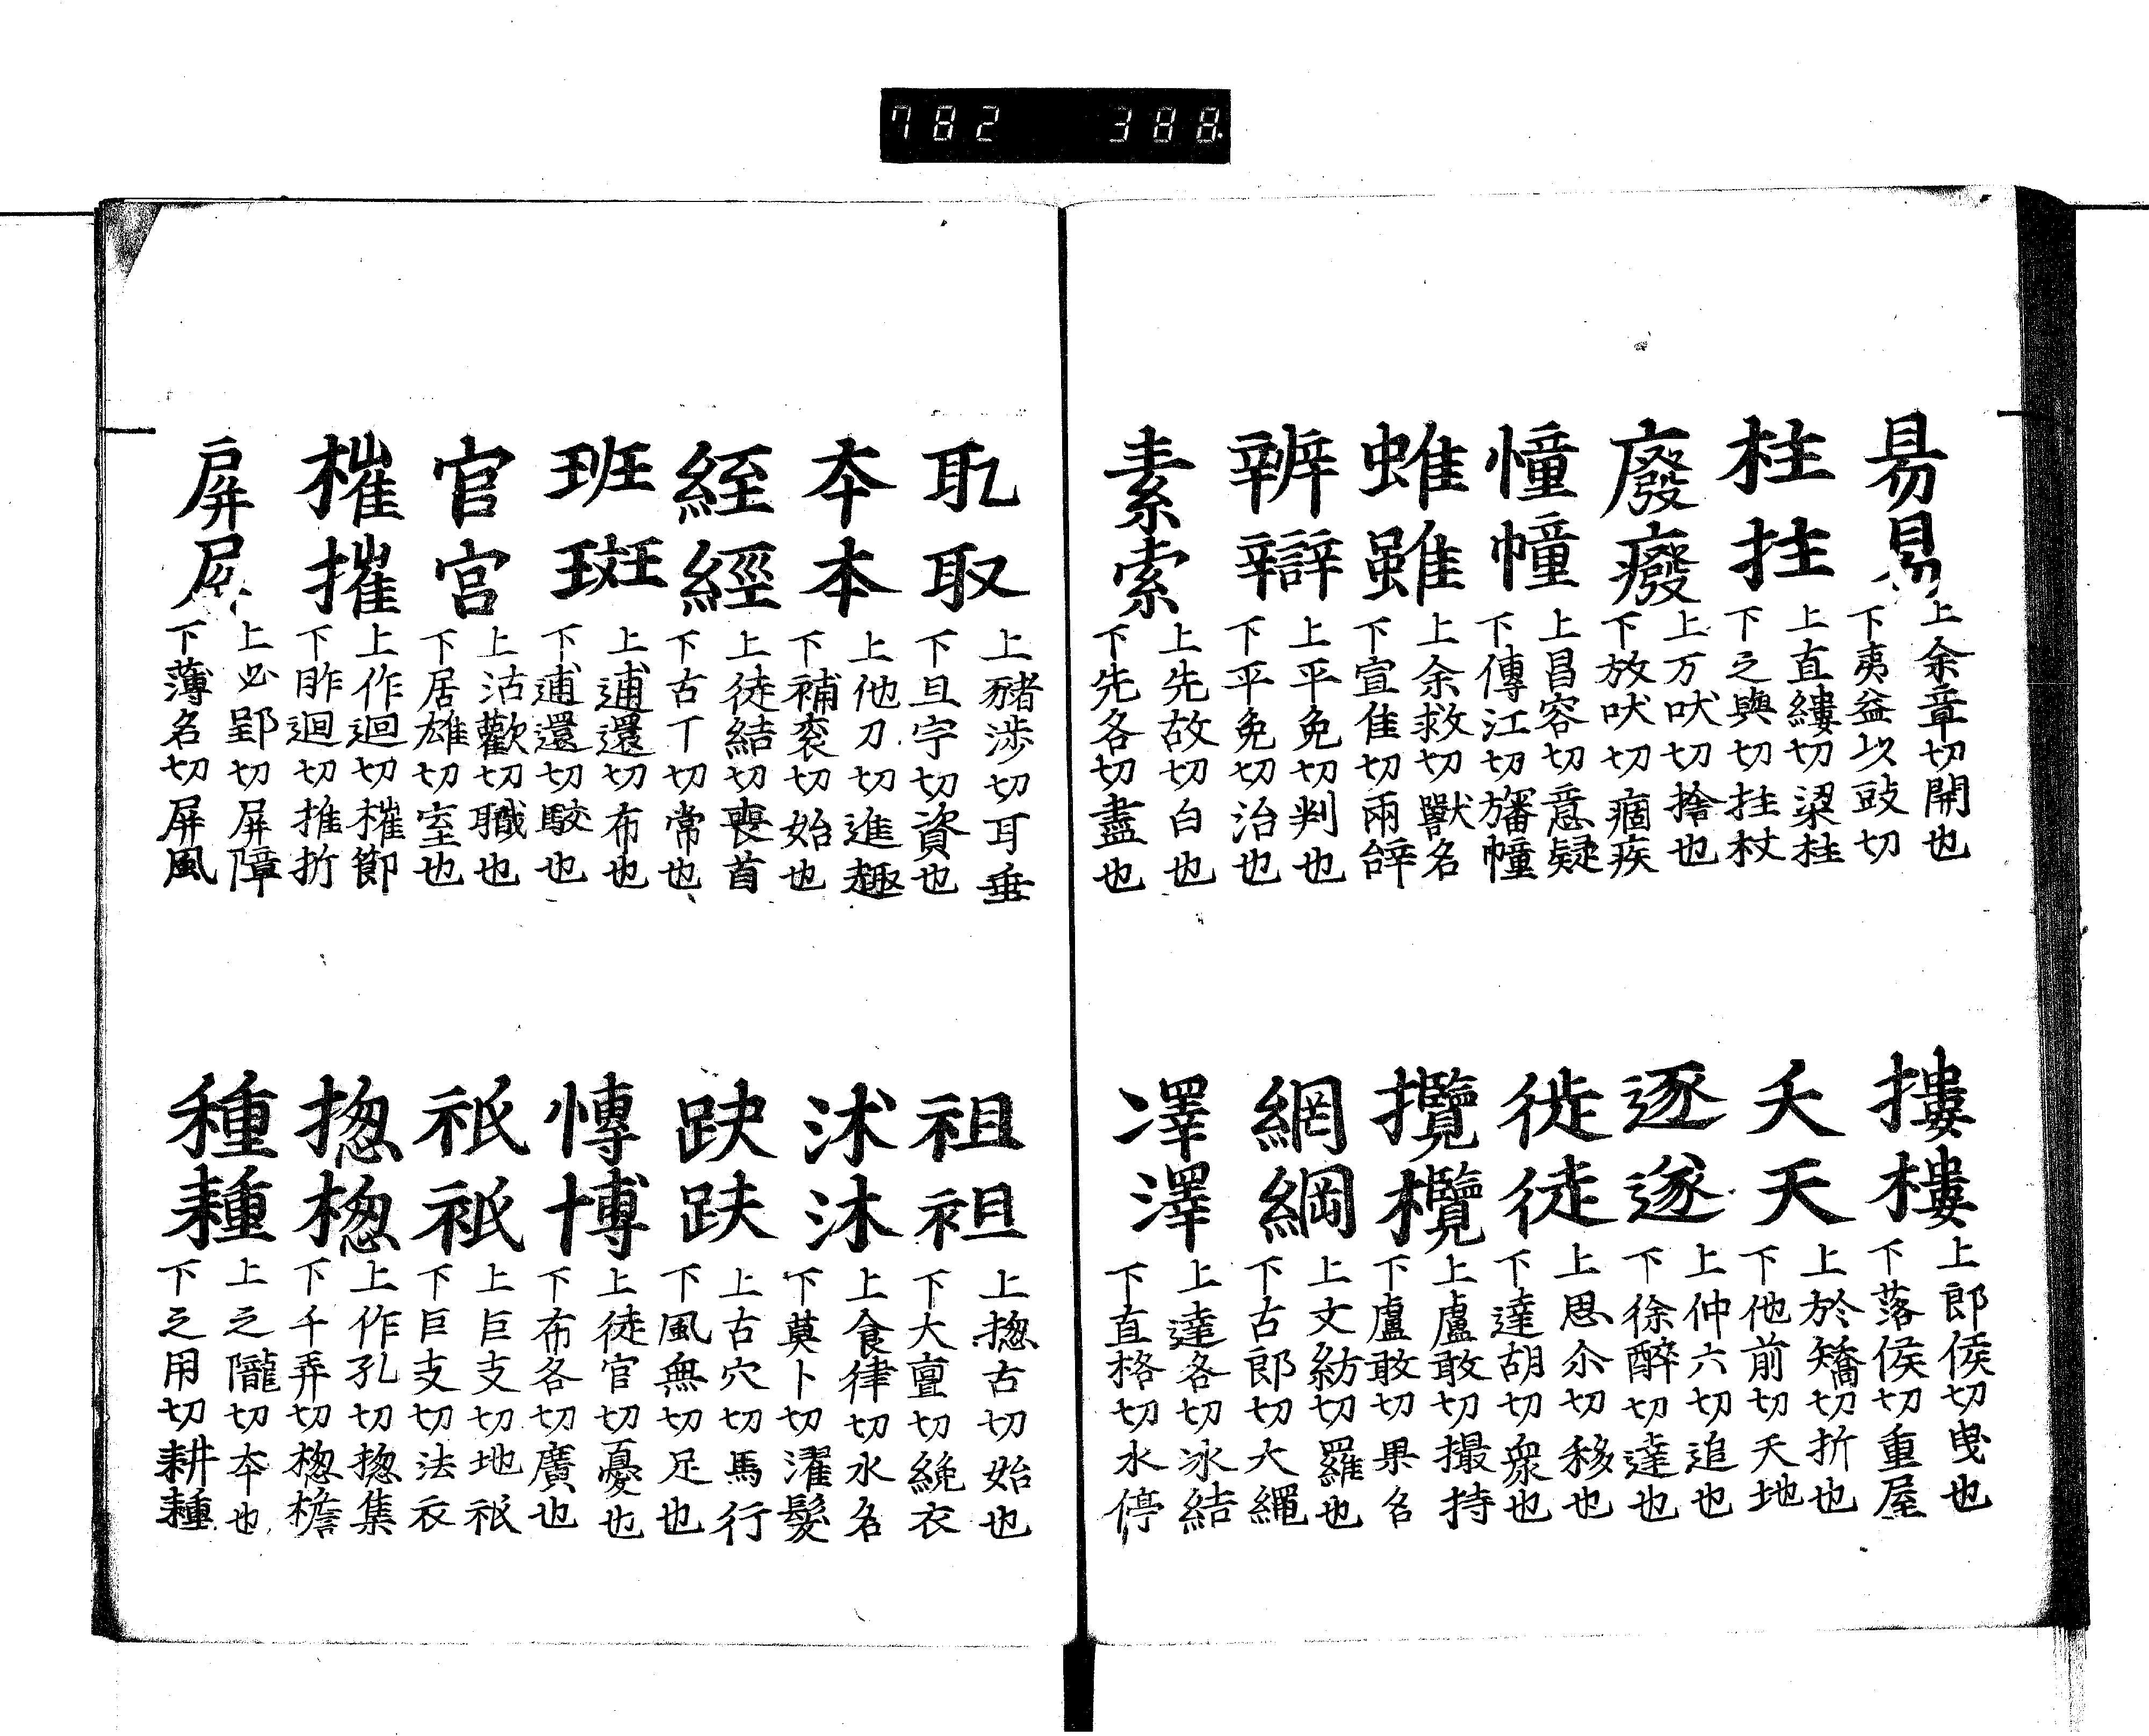 782 388
昜易
上余章切開也
下夷益以豉切
摟樓
上郎侯切曳也
下落侯切重屋
柱拄
上直縷切梁柱
下之與切拄杖
夭天
上於矯切折也
下他前切天地
廢癈
上方吠切捨也
下放吠切痼疾
逐遂
上仲六切追也
下徐醉切達也
憧幢
上昌容切意疑
下傳江切旛幢
徙徒
上思尒切移也
下達胡切衆也
蜼雖
上余救切獸名
下宣隹切兩辝
攬欖
上盧敢切撮持
下盧敢切果名
辨辯
上平免切判也
下平免切治也
網綱
上文紡切羅也
下古郎切大繩
素索
上先故切白也
下先各切盡也
凙澤
上達各切冰結
下直格切水停
耴取
上豬涉切耳垂
下且宇切資也
祖袒
上揔古切始也
下大亶切絻衣
夲本
上他刀切進趣
下補衮切始也
沭沐
上食律切水名
下莫卜切濯髮
絰經
上徒結切喪首
下古丁切常也
趹趺
上古穴切馬行
下風無切足也
班斑
上逋還切布也
下逋還切駮也
慱博
上徒官切憂也
下布各切廣也
官宫
上沽歡切職也
下居雄切室也
祇衹
上巨支切地祇
下巨支切法衣
槯摧
上作迴切槯節
下昨迴切推折
揔楤
上作孔切揔集
下千弄切楤檐
屏屏
上必郢切屏障
下薄名切屏風
種䅰
上之隴切夲也
下之用切耕䅰